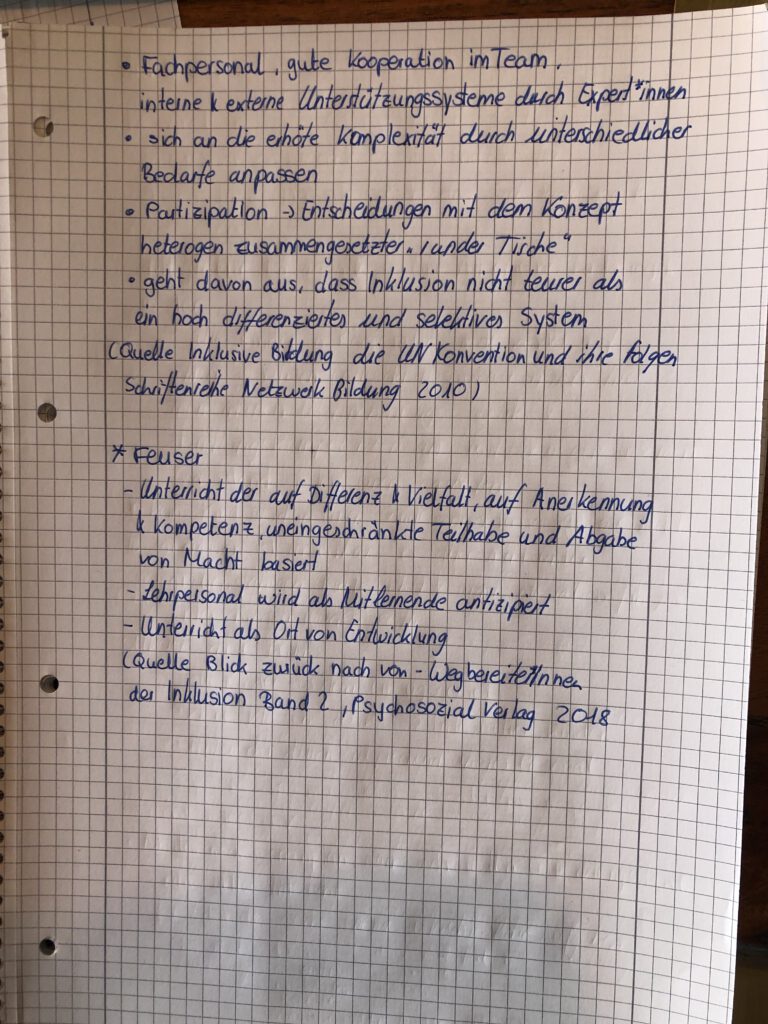 • Fachpersonal, gute Kooperation im Team,
interne & externe Unterstützungssysteme durch Expert*innen
• sich an die erhöte Komplexität durch unterschiedlicher
Bedarfe anpassen
• Partizipation -> Entscheidungen mit dem Konzept
heterogen zusammengesetzter „runder Tische"
• geht davon aus, dass Inklusion nicht teurer als
ein hoch differenziertes und selektives System
(Quelle Inklusive Bildung die UN Konvention und ihre folgen
Schriftenreihe Netzwerk Bildung 2010)
* Feuser
- Unterricht der auf Differenz & Vielfalt, auf Anerkennung
& Kompetenz, uneingeschränkte Teilhabe und Abgabe
von Macht basiert
- Lehrpersonal wird als Mitlernende antizipiert
- Unterricht als Ort von Entwicklung
(Quelle Blick zurück nach von - Wegbereiter*Innen
der Inklusion Band 2, Psychosozial Verlag 2018